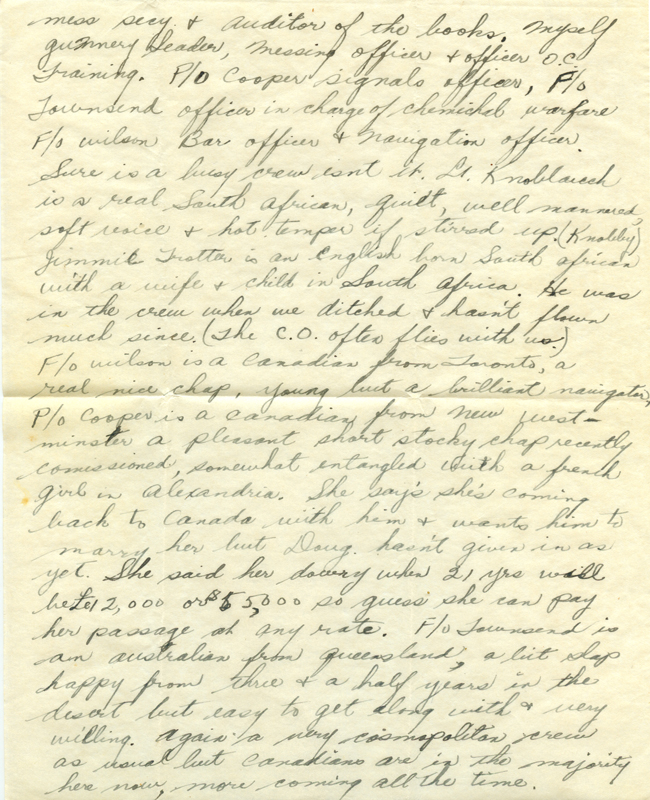 mess secy. & auditor of the books. Myself
gunnery leader, messing officer & officer O.C.
Training. P/O Cooper signals officer, F/o
Townsend officer in charge of chemichal warfare
F/o Wilson Bar officer & navigation officer.
Sure is a busy crew isnt it. Lt. Knoblauch
is a real South African, quiet, well mannered,
soft voice & hot temper if stirred up. (Knobby)
Jimmie Trotter is an English born South african
with a wife & child in South Africa. He was
in the crew when we ditched & hasn't flown
much since. (The C.O. often flies with us.)
F/o Wilson is a Canadian from Toronto, a
real nice chap, young but a brilliant navigator,
P/o Cooper is a canadian from New West-
minster a pleasant short stocky chap recently
comissioned, somewhat entangled with a french
girl in Alexandria. She say's she's coming
back to Canada with him & wants him to
marry her but Doug. hasn't given in as
yet. She said her dowry when 21 yrs will
be £12,000 or $55,000 so guess she can pay
her passage at any rate. F/o Townsend is
an australian from queensland, a bit slap
happy from three & a half years in the
desert but easy to get along with & very
willing. Again a very cosmopolitan crew
as usual but Canadians are in the majority
here now, more coming all the time.